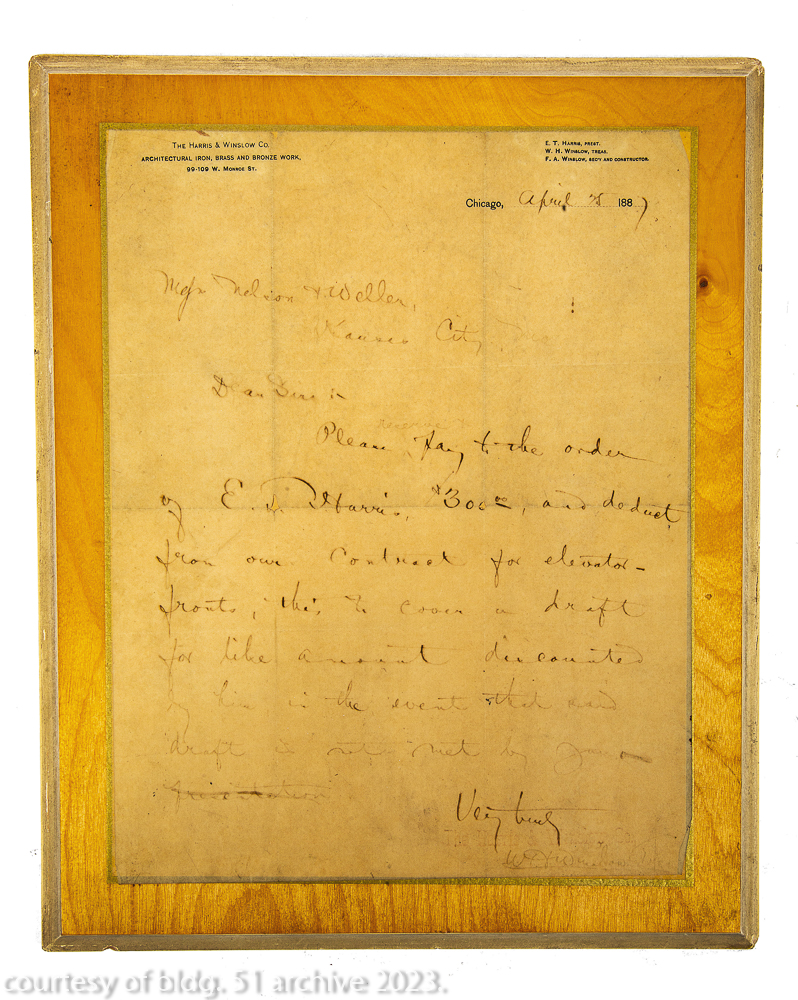 THE HARRIS & WINSLOW CO.
ARCHITECTURAL IRON, BRASS AND BRONZE WORK,
99-109 W. MONROE ST.
E. T. HARRIS, PREST.
W. H. WINSLOW, TREAS.
F. A. WINSLOW, SEC'Y AND CONSTRUCTOR.
Chicago, April 1887.
Nelson & Weller,
Kansas City
Dear Sirs :-
Please pay to the order
of E. T. Harris, $300.00, and deduct
from our contract for elevator-
fronts, this to cover a draft
for like amount discounted
by him in the event that said
draft is not met by you
presentation
Very truly
W H Winslow
courtesy of bldg. 51 archive 2023.